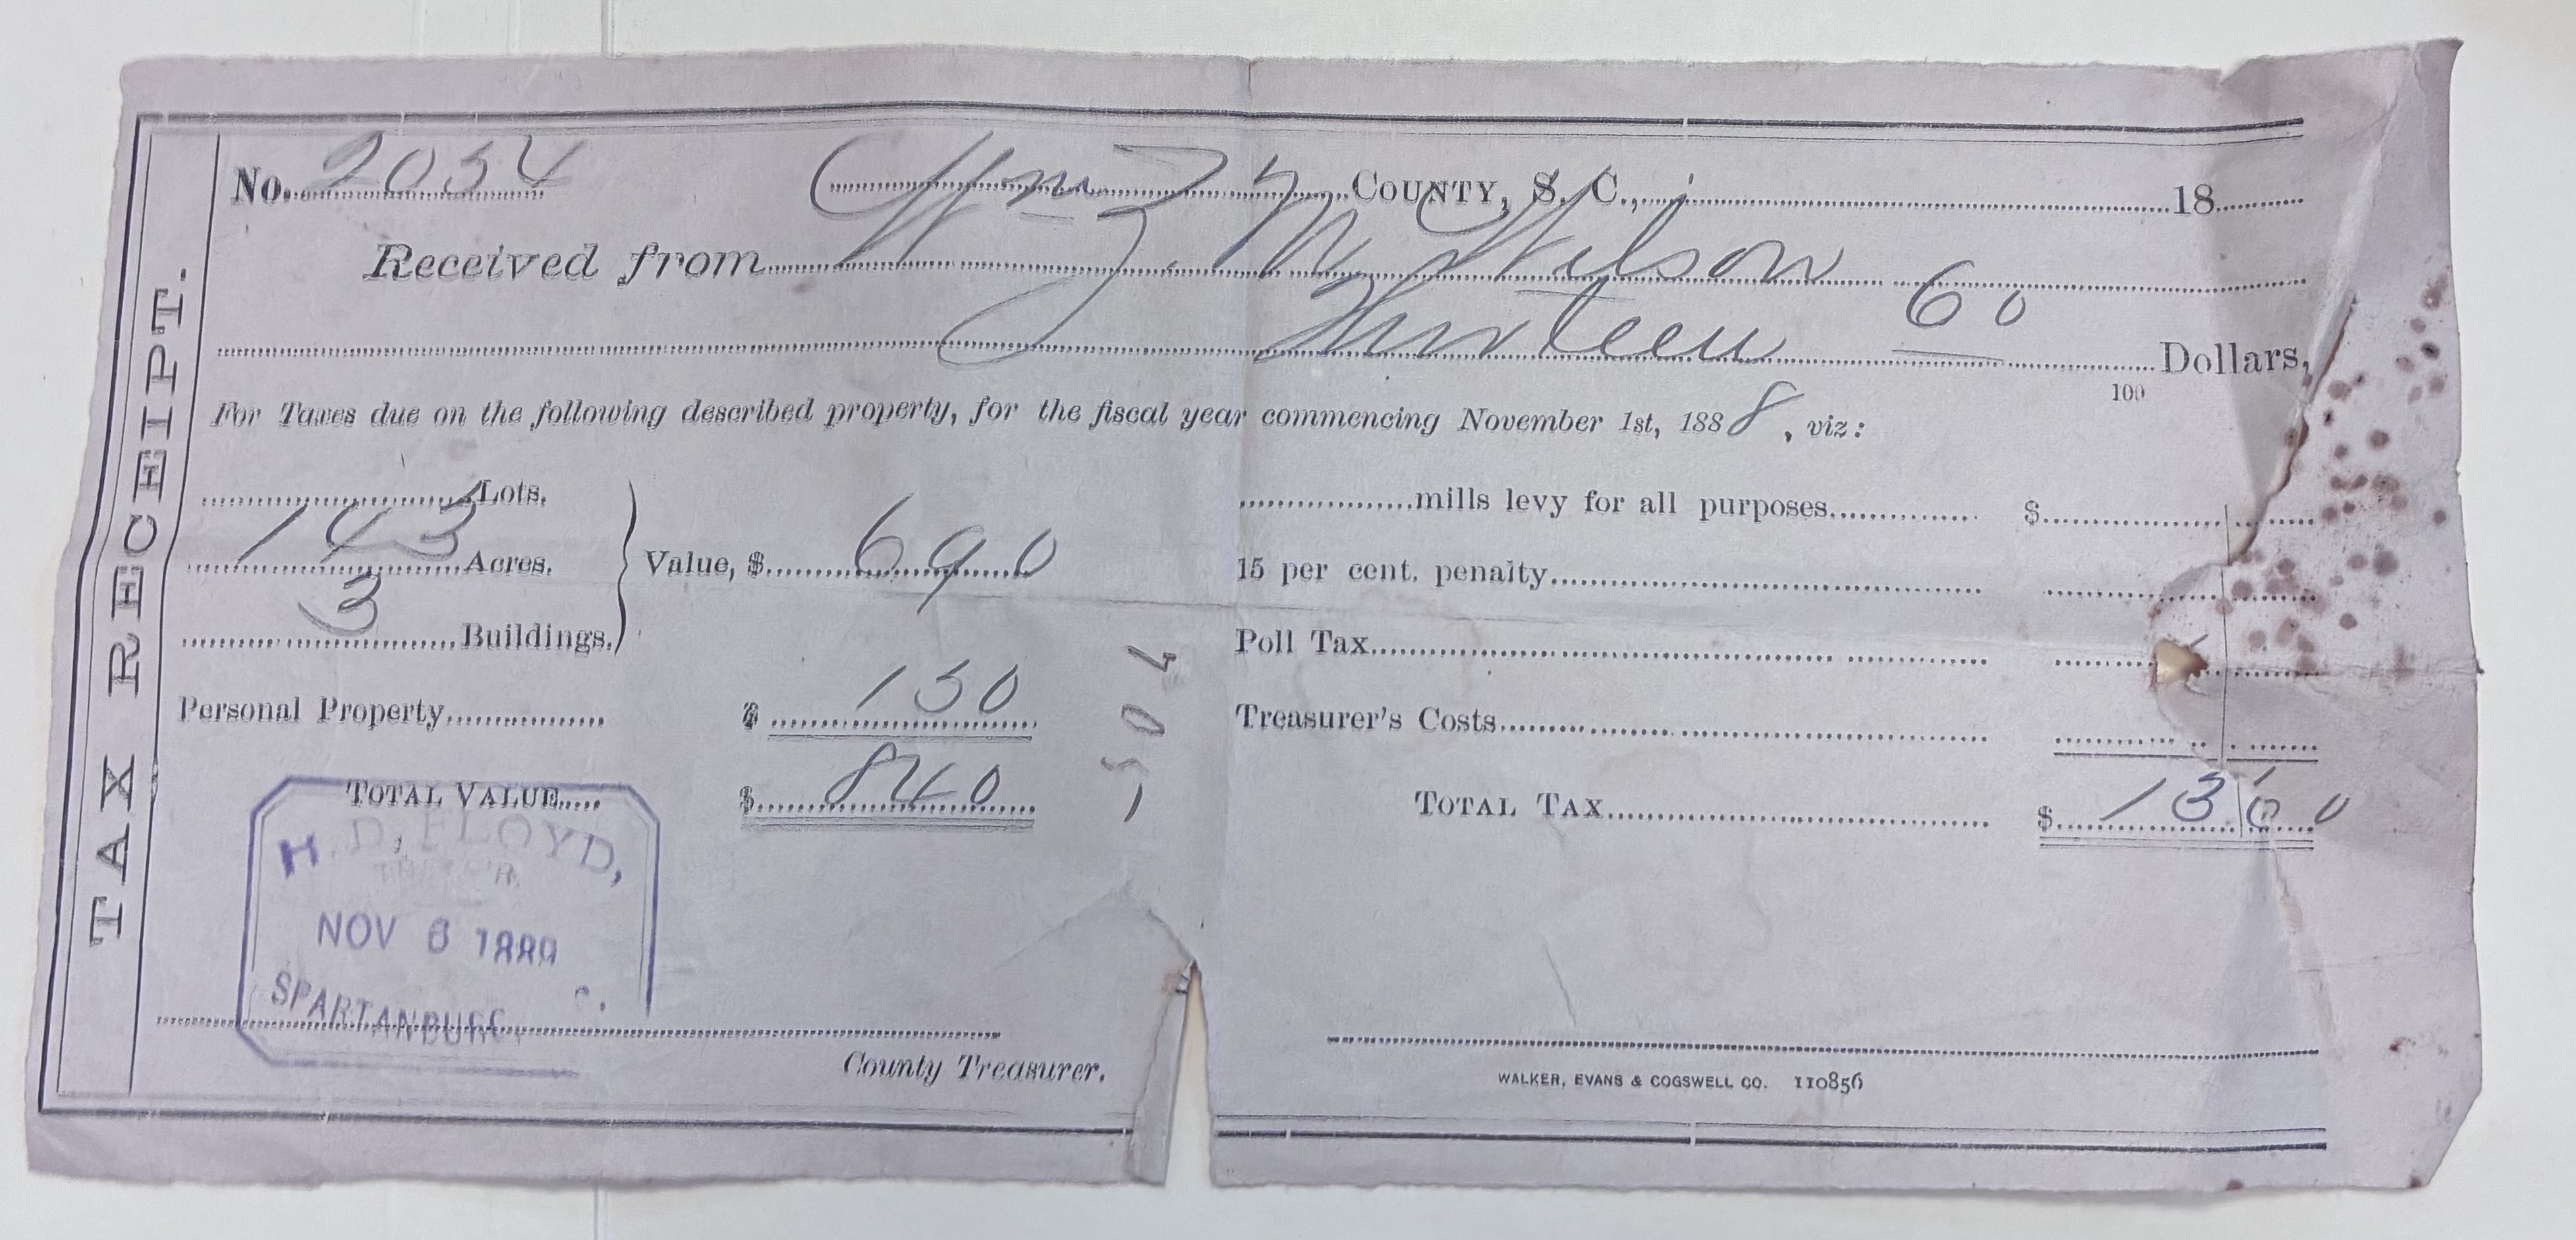 TAX RECEIPT.
No. 2054 COUNTY, S. C., 18
Received from Wm J. M. Wilson
Thirteen 60/100 Dollars,
For Taxes due on the following described property, for the fiscal year commencing November 1st, 1888, viz:
Lots.
143 Acres.
3 Buildings.
Value, $ 690
Personal Property $ 150
TOTAL VALUE $ 840
mills levy for all purposes $
15 per cent. penalty
Poll Tax
Treasurer's Costs
TOTAL TAX $ 13 60
H. D. FLOYD,
NOV 6 1889
SPARTANBURG,
County Treasurer.
WALKER, EVANS & COGSWELL CO. 110856